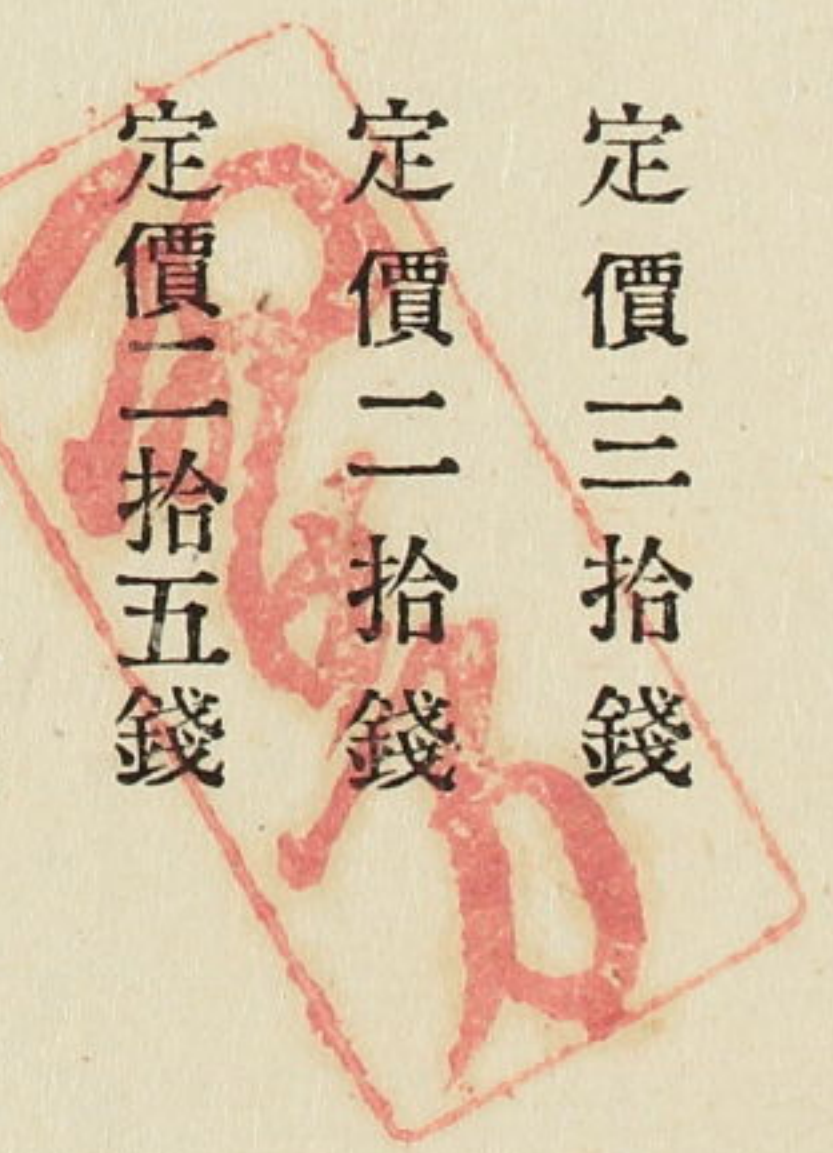 定價三拾錢
定價二拾錢
定價二拾五錢